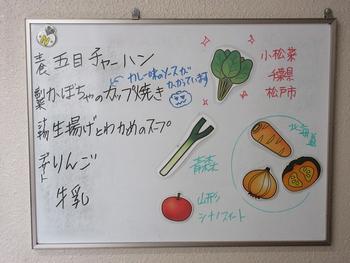 五目チャーハン
カレー味のソースが
かかっています
かぼちゃのカップ焼き
生揚げとわかめのスープ
りんご
牛乳
小松菜
千葉県
松戸市
北海道
青森
山形
シナノスイート